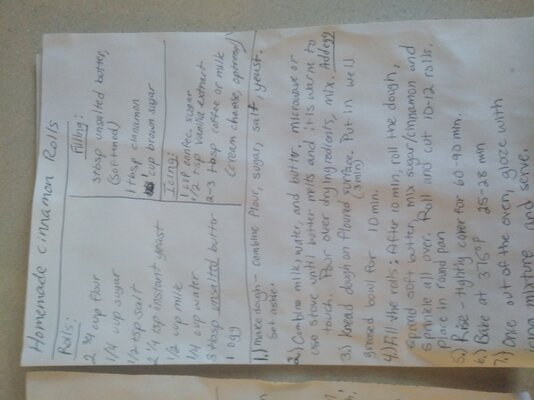 Homemade Cinnamon Rolls
Rolls:
2 3/4 cup flour
1/4 cup sugar
1/2 tsp salt
2 1/4 tsp instant yeast
1/2 cup milk
1/4 cup water
3 tbsp unsalted butter
1 egg
Filling:
3 tbsp unsalted butter,
(softened)
1 tbsp cinnamon
cup brown sugar
Icing:
1 cup confec. sugar
1/2 tsp vanilla extract
2-3 tbsp coffee or milk
(cream cheese, optional)
1.) Make dough - combine flour, sugar, salt, yeast.
Set aside.
2.) Combine milk, water, and butter, microwave or
use stove until butter melts and it is warm to
touch. Pour over dry ingredients, mix. Add egg
3.) Knead dough on floured surface. Put in well
(3 min)
greased bowl for 10 min.
4.) Fill the rolls: After 10 min, roll the dough,
spread soft butter, mix sugar/cinnamon and
sprinkle all over. Roll and cut 10-12 rolls.
Place in round pan
5.) Rise - tightly cover for 60-90 min.
6.) Bake at 375°F 25-28 min
7.) Once out of the oven, glaze with
icing mixture and serve.